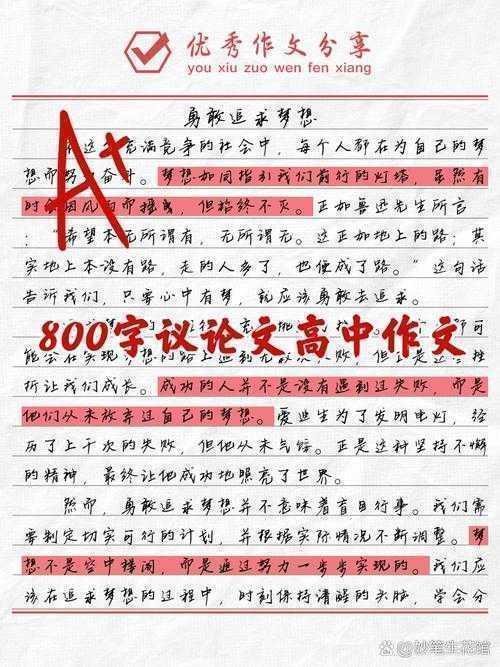 优秀作文分享
you xiu zuo wen fen xiang
A+
勇敢追求梦想
这 充满竞争的社会中，每个人都在为自己的梦
想而努力奋斗。梦想如同指引我们前行的灯塔，虽然有
时 因风雨而摇曳，但始终不灭。正如鲁迅先生所言
：“希望本无所谓有，无所谓无。这正如地上的路；其
实地上本没有路，走的人多了，也便成了路。”这句话
告诉我们，只要心中有梦，就应该勇敢去追求。
800字议论文高中作文
折让我们成长。成功的人并不是没有遇到过失败，而是
他们从未放弃过自己的梦想。爱迪生为了发明电灯，经
历了上千次的失败，但他从未气馁。正是这种坚持不懈
的精神，最终让他成功地照亮了世界。
然而，勇敢追求梦想并不意味着盲目行事。我们需
要制定切实可行的计划，并根据实际情况不断调整。梦
想不是空中楼阁，而是通过努力一步步实现的。我们应
该在追求梦想的过程中，时刻保持清醒的头脑，学会分
@妙笔生花馆